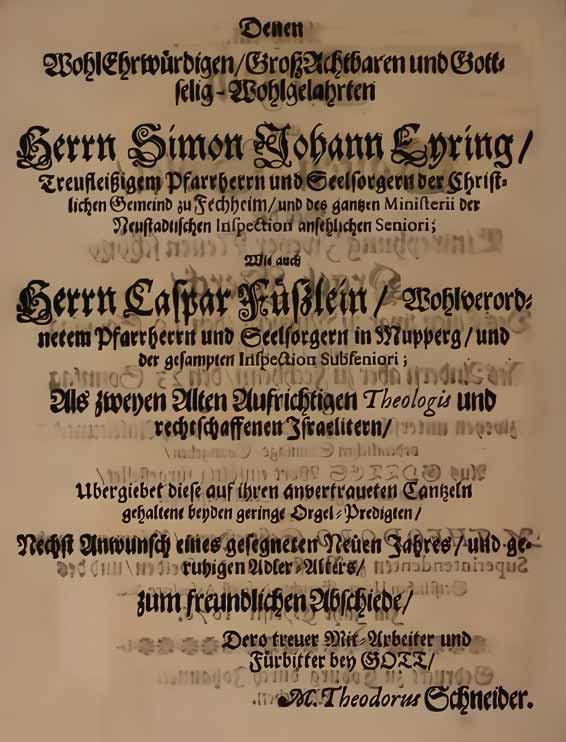 Denen
WohlEhrwürdigen/GroßAchtbaren und Gott-
selig-Wohlgelahrten
Herrn Simon Johann Eyring/
Treufleißigem Pfarrherrn und Seelsorgern der Christ-
lichen Gemeind zu Fechheim/und des gantzen Ministerii der
Neustadtischen Inspection ansehlichen Seniori;
Wie auch
Herrn Caspar Füßlein/ Wohlverord-
netem Pfarrherrn und Seelsorgern in Mupperg/und
der gesampten Inspection Subseniori;
Als zweyen Alten Aufrichtigen Theologis und
rechtschaffenen Israelitern/
Ubergiebet diese auf ihren anvertraueten Cantzeln
gehaltene beyden geringe Orgel-Predigten/
Nechst Anwunsch eines gesegneten Neüen Jahres/und ge-
ruhigen Adler-Alters/
zum freundlichen Abschiede/
Dero treuer Mit-Arbeiter und
Fürbitter bey GOTT/
M. Theodorus Schneider.